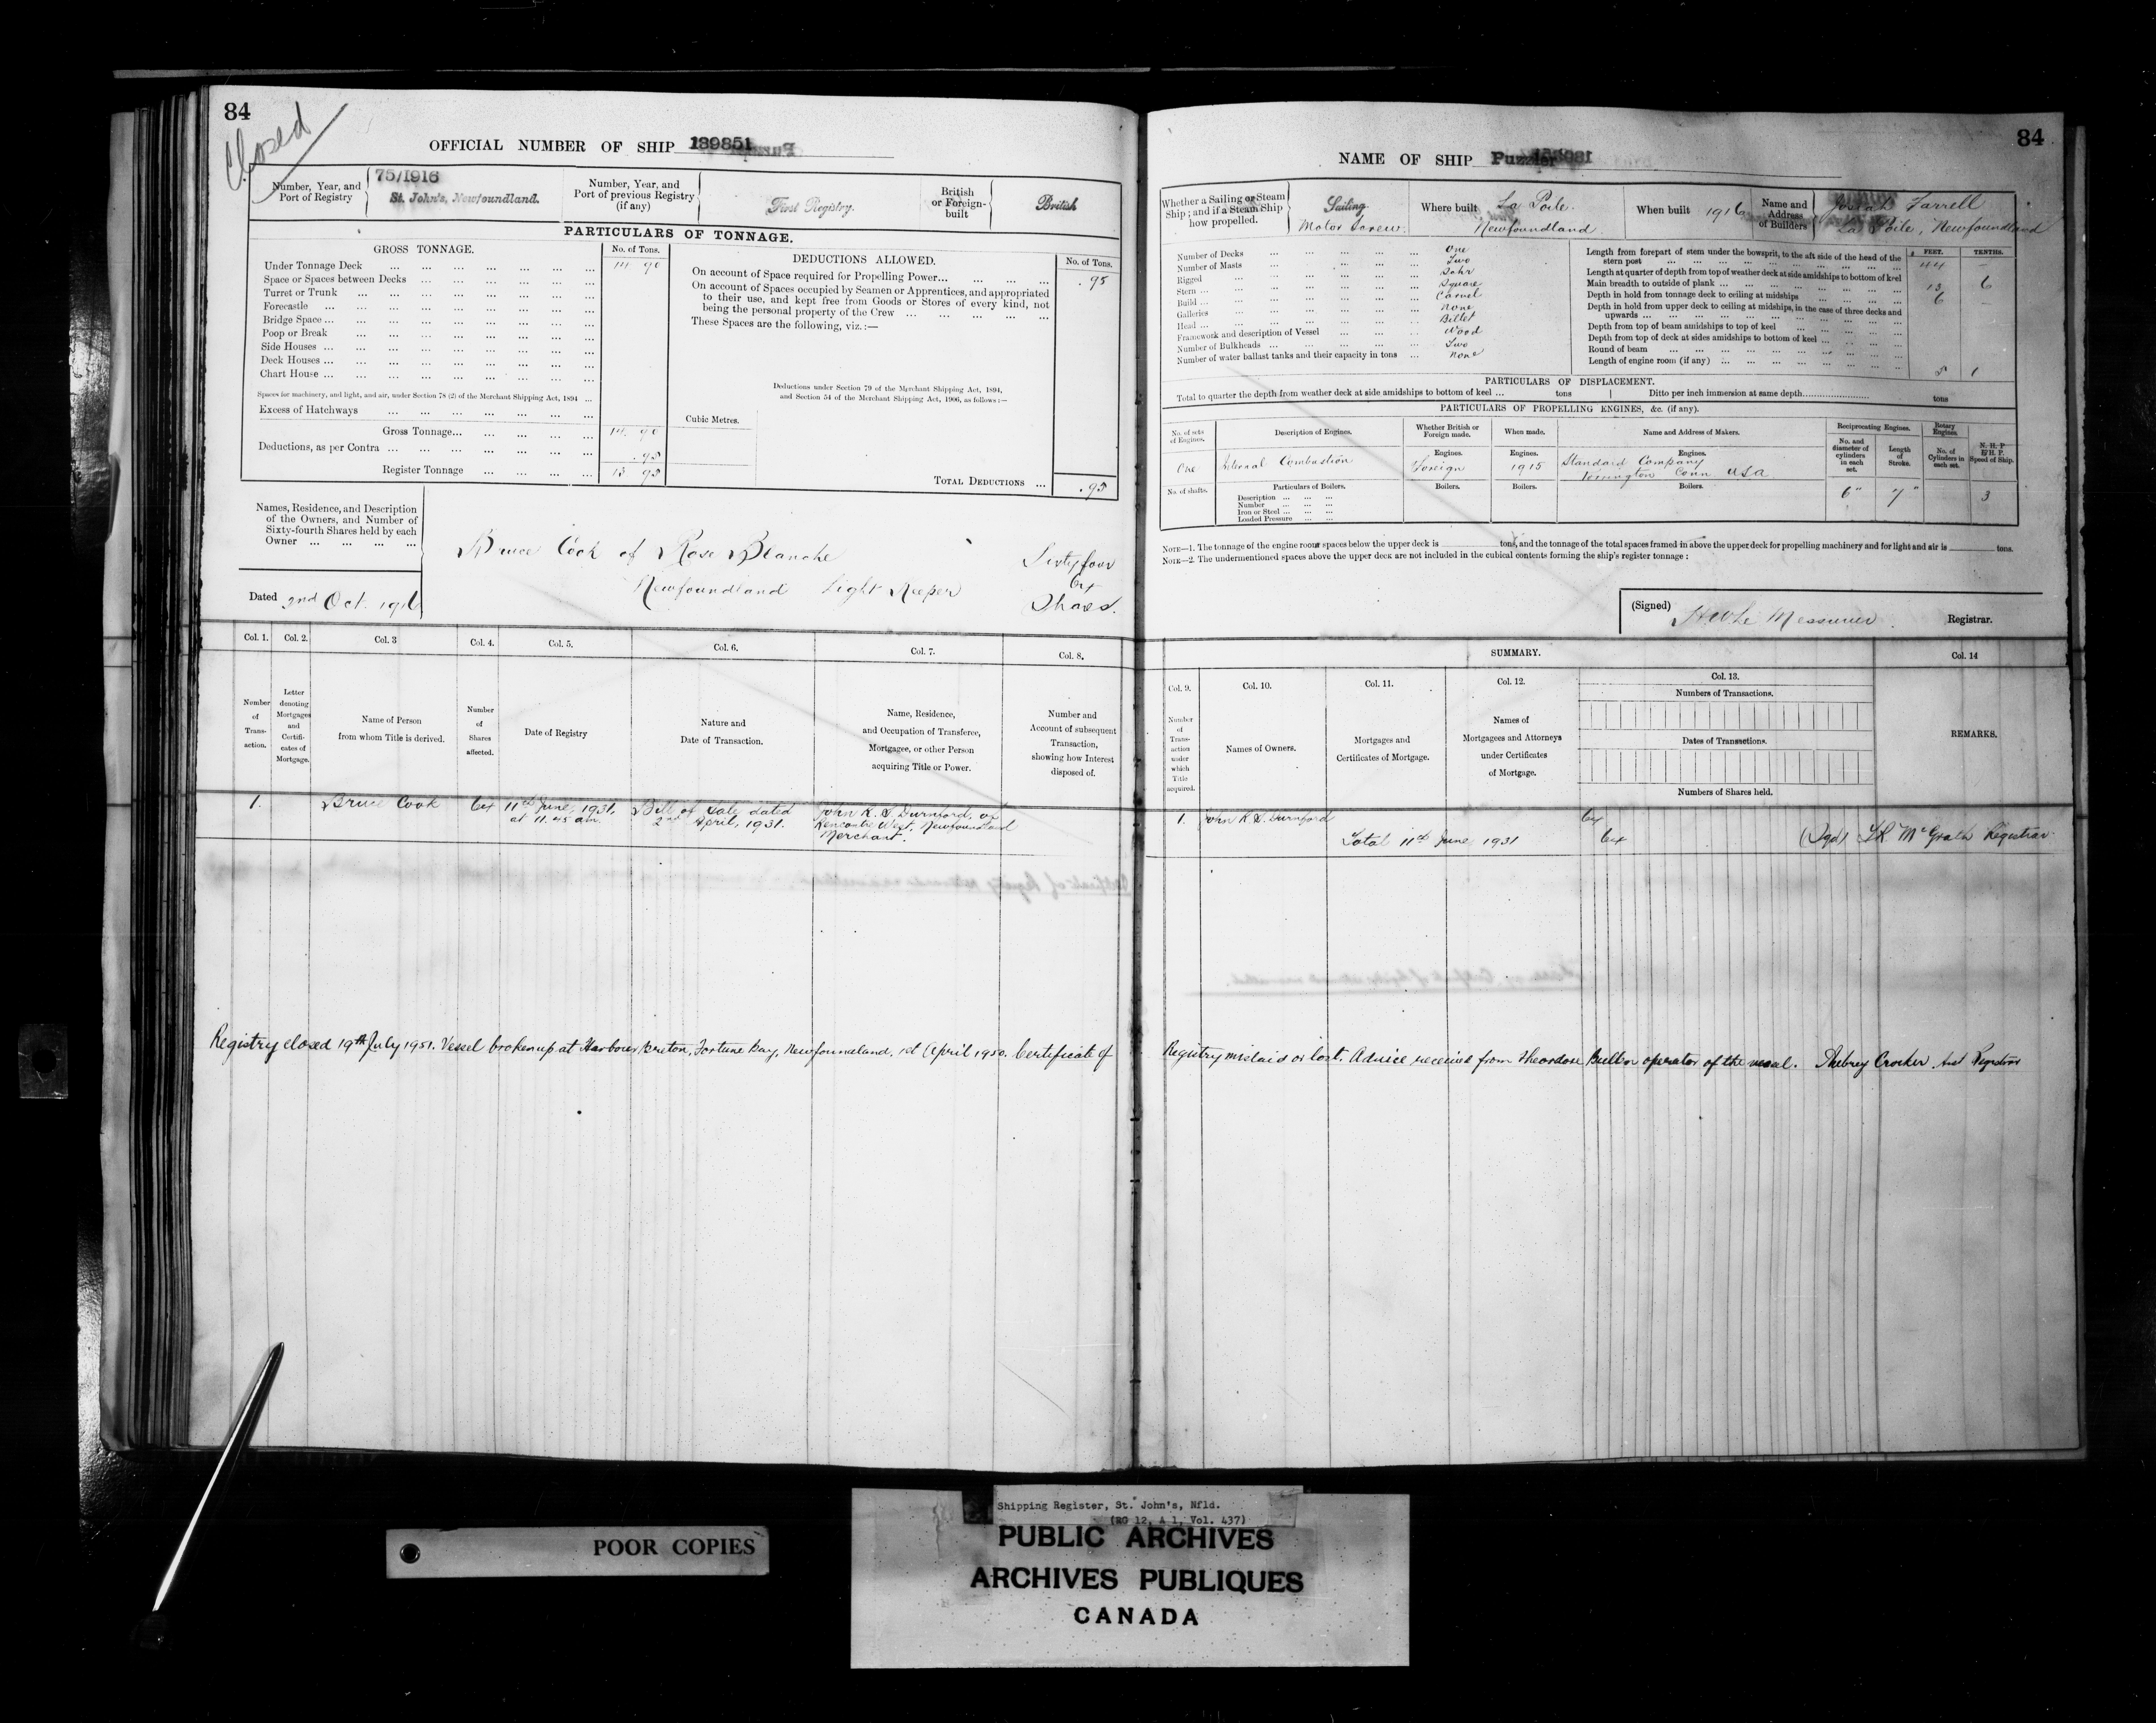 84
Closed
OFFICIAL NUMBER OF SHIP 139851
Number, Year, and Port of Registry
75/1916
St. John's, Newfoundland.
Number, Year, and Port of previous Registry (if any)
First Registry.
British or Foreign-built
British
PARTICULARS OF TONNAGE.
GROSS TONNAGE.
No. of Tons.
Under Tonnage Deck ... 14 90
Space or Spaces between Decks ...
Turret or Trunk ...
Forecastle ...
Bridge Space ...
Poop or Break ...
Side Houses ...
Deck Houses ...
Chart House ...
Spaces for machinery, and light, and air, under Section 78 (2) of the Merchant Shipping Act, 1894 ...
Excess of Hatchways ...
Gross Tonnage... 14. 90
Deductions, as per Contra ... .95
Register Tonnage ... 13 95
Cubic Metres.
DEDUCTIONS ALLOWED.
No. of Tons.
On account of Space required for Propelling Power... .95
On account of Spaces occupied by Seamen or Apprentices, and appropriated
to their use, and kept free from Goods or Stores of every kind, not
being the personal property of the Crew ...
These Spaces are the following, viz.:—
Deductions under Section 79 of the Merchant Shipping Act, 1894,
and Section 54 of the Merchant Shipping Act, 1906, as follows:—
TOTAL DEDUCTIONS ... .95
Names, Residence, and Description
of the Owners, and Number of
Sixty-fourth Shares held by each
Owner ...
Dated 2nd Oct. 1916
Bruce Cook of Rose Blanche
Newfoundland Light Keeper
Sixty four
64
Shares.
Col. 1. Col. 2. Col. 3 Col. 4. Col. 5. Col. 6. Col. 7. Col. 8.
Number of Transaction.
Letter denoting Mortgages and Certificates of Mortgage.
Name of Person from whom Title is derived.
Number of Shares affected.
Date of Registry
Nature and Date of Transaction.
Name, Residence, and Occupation of Transferee, Mortgagee, or other Person acquiring Title or Power.
Number and Account of subsequent Transaction, showing how Interest disposed of.
1. Bruce Cook 64 11th June, 1931, at 11.45 am. Bill of Sale dated 2nd April, 1931. John K. S. Durnford, of Rencontre West, Newfoundland Merchant.
Registry closed 19th July 1951. Vessel broken up at Harbour Breton, Fortune Bay, Newfoundland, 1st April 1950. Certificate of
84
NAME OF SHIP Puzzler
Whether a Sailing or Steam Ship; and if a Steam Ship how propelled.
Sailing
Motor Screw.
Where built La Poile.
Newfoundland
When built 1916
Name and Address of Builders
Josiah Farrell
La Poile, Newfoundland
Number of Decks ... One
Number of Masts ... Two
Rigged ... Schr
Stem ... Square
Build ... Carvel
Galleries ... None
Head ... Billet
Framework and description of Vessel ... Wood
Number of Bulkheads ... Two
Number of water ballast tanks and their capacity in tons ... None
FEET. TENTHS.
Length from forepart of stem under the bowsprit, to the aft side of the head of the
stern post ... 44 -
Length at quarter of depth from top of weather deck at side amidships to bottom of keel
Main breadth to outside of plank ... 13 6
Depth in hold from tonnage deck to ceiling at midships ... 6 -
Depth in hold from upper deck to ceiling at midships, in the case of three decks and
upwards ...
Depth from top of beam amidships to top of keel ...
Depth from top of deck at sides amidships to bottom of keel ...
Round of beam ...
Length of engine room (if any) ... 8 1
PARTICULARS OF DISPLACEMENT.
Total to quarter the depth from weather deck at side amidships to bottom of keel ... tons
Ditto per inch immersion at same depth... tons
PARTICULARS OF PROPELLING ENGINES, &c. (if any).
No. of sets of Engines.
Description of Engines.
Whether British or Foreign made.
When made.
Name and Address of Makers.
Reciprocating Engines.
No. and diameter of cylinders in each set.
Length of Stroke.
Rotary Engines.
No. of Cylinders in each set.
N. H. P
E/H. P.
Speed of Ship.
One
Internal Combustion
Engines. Foreign
Engines. 1915
Engines. Standard Company
Torrington Conn USA
6" 7" 3
No. of shafts.
Particulars of Boilers.
Description ...
Number ...
Iron or Steel ...
Loaded Pressure ...
Boilers. Boilers. Boilers.
NOTE—1. The tonnage of the engine room spaces below the upper deck is tons, and the tonnage of the total spaces framed in above the upper deck for propelling machinery and for light and air is tons.
NOTE—2. The undermentioned spaces above the upper deck are not included in the cubical contents forming the ship's register tonnage:
(Signed) H W Le Messurier. Registrar.
SUMMARY.
Col. 14
Col. 9. Col. 10. Col. 11. Col. 12. Col. 13.
Number of Transaction under which Title acquired.
Names of Owners.
Mortgages and Certificates of Mortgage.
Names of Mortgagees and Attorneys under Certificates of Mortgage.
Numbers of Transactions.
Dates of Transactions.
Numbers of Shares held.
REMARKS.
1. John K S. Durnford 64
Total 11th June 1931 64 (Sgd) McGrath Registrar
Registry mislaid or lost. Advice received from Theordore operator of the vessal. Aubrey Crocker. Asst Registrar
POOR COPIES
Shipping Register, St. John's, Nfld.
(RG 12, A 1, Vol. 437)
PUBLIC ARCHIVES
ARCHIVES PUBLIQUES
CANADA